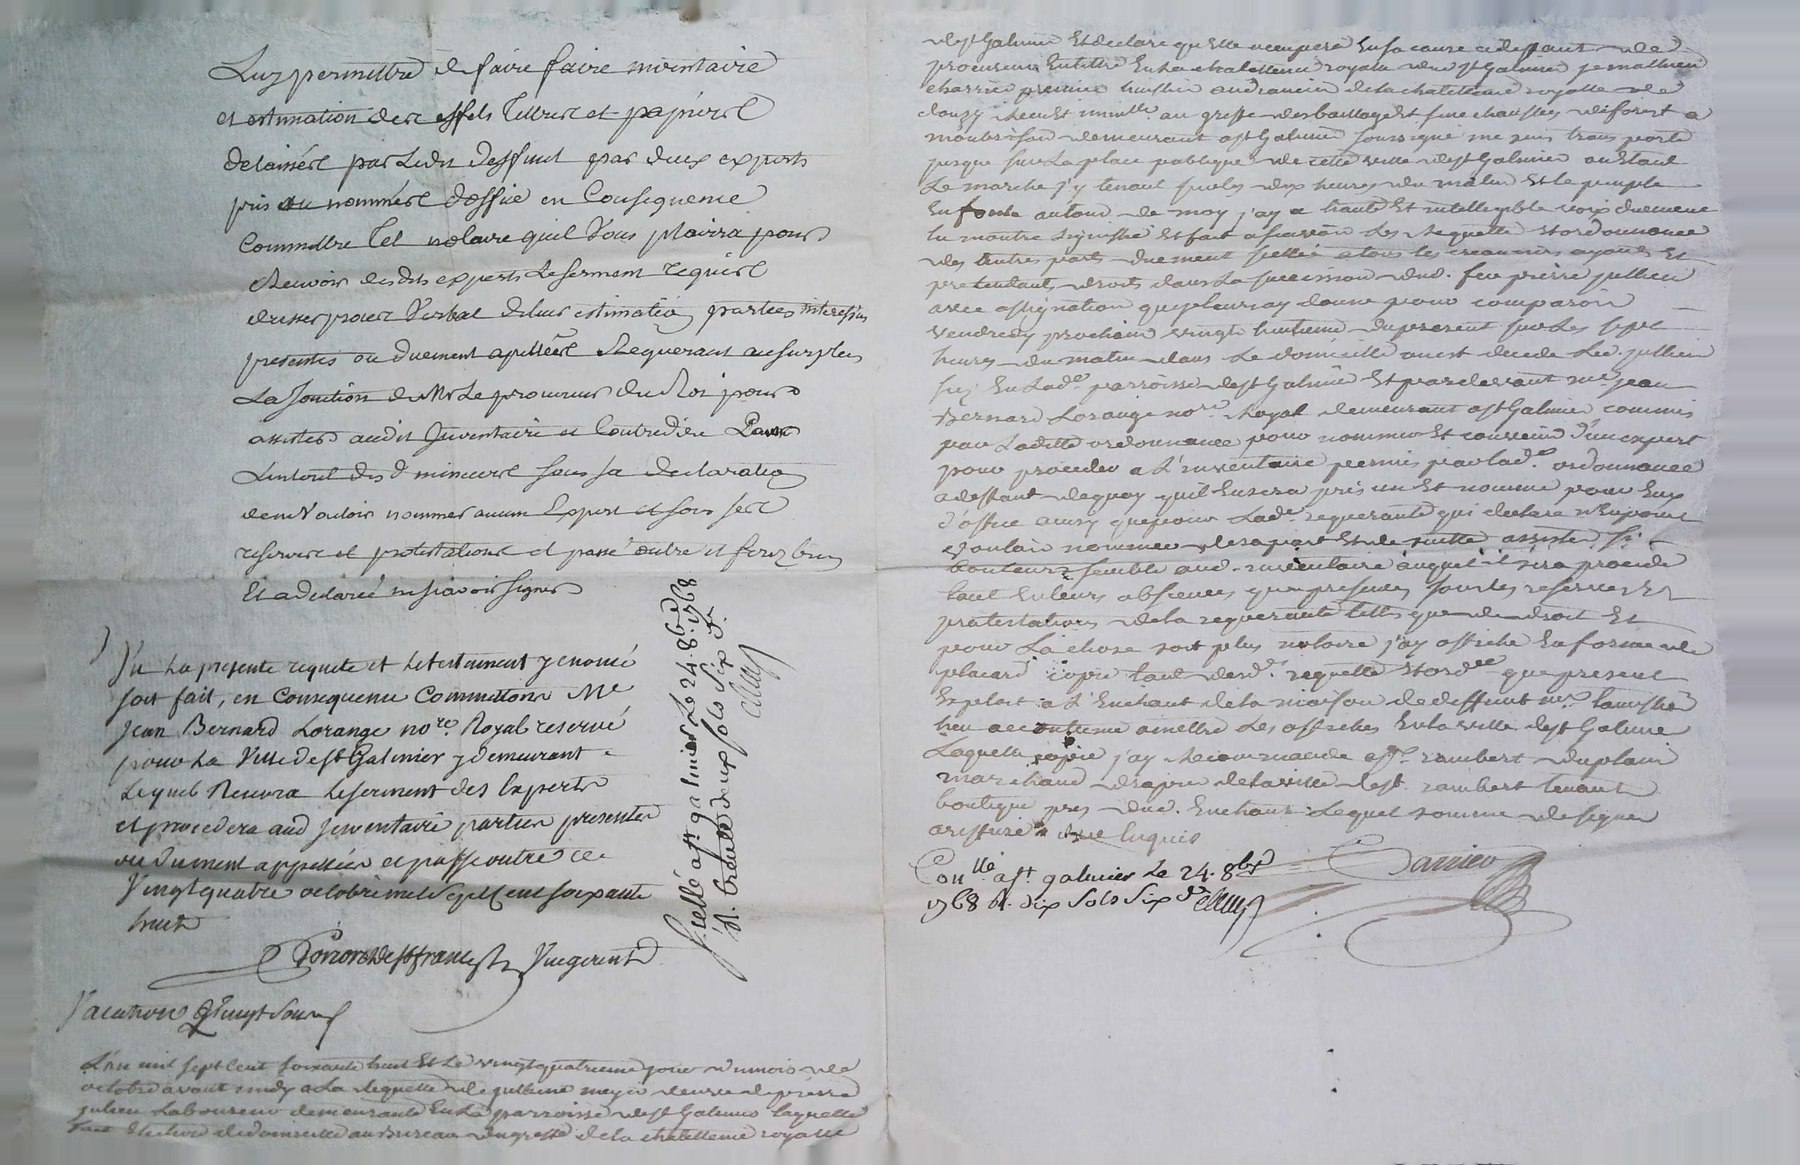 Luy permettre de faire faire inventaire
et estimation des effets titres et papiers
delaissés par Ledit deffunt par deux experts
pris ou nommés d'office en Consequence
Commettre tel notaire quil Vous plaira pour
Recevoir desdits experts Le serment requis
dresser procès Verbal de leur estimatiõ parties interessées
presentes ou duement apellées Requerant au surplus
La Jonction de Mr Le procureur du Roi pour
assister audit Inventaire et Contredire
des d mineurs sous sa declaratiõ
de ne Vouloir nommer aucun Expert et sous ses
reserves et protestations et passé outre et ferez bien
Et a declaré ne sçavoir signer
Vu La presente requete et
soit fait, en Consequence Commettons Me
Jean Bernard Lorange nore Royal reservé
pour La Ville de st Galmier y demeurant
Lequel Recevra le serment des Experts
et procedera aud Inventaire parties presentes
ou dument appellées et passe outre ce
Vingt quatre octobre mil sept cent soixante
huit
Vicegerent
Vacations Vingt sous
scellé a st galmier Le 24. 8bre 1768
R. deux sols six drs
L'an mil sept cent soixante huit Et Le vingt quatrieme jour du mois de
octobre avant midy a La Requette de veuve de pierre
julien Laboureur demeurante En La parroisse de st Galmier laquelle
fait Election de domicille au Bureau du greffe de la chatellenie royalle
de st Galmier Et declare quElle occupera En sa cause a deffaut de
procureurs En titre En La chatellenie royalle dud st Galmier je mathieu
charrier premier huissier audiancier de la chatellenie royalle de
donzy Receu Et immle au greffe des baillage Et senechaussée de forest a
montbrison demeurant a st Galmier soussigné me suis transporté
jusque sur La place publique de cette ville de st Galmier ou Etant
Le marché j'y tenant sur les dix heures du matin Et le peuple
En foule autour de moy j'ay a haute Et intelligible voix duement
lu montré signiffié Et fait a sçavoir Les Requette Et ordonnance
des autres parts duement scellée a tous les creanciers ayants Et
pretendants droits dans La succession dud. feu pierre jullien
avec assignation que je leur ay donné pour comparoir
vendredy prochain vingt huitieme du present sur Les sept
heures du matin dans Le domicille ou est decedé Led. jullien
sis En Lade parroisse de st Galmier Et par devant Me jean
Bernard Lorange nore Royal demeurant a st Galmier commis
par Ladite ordonnance pour nommer Et convenir d'un expert
pour proceder a L'inventaire permis par lade ordonnance
a deffaut de quoy quil En sera pris un Et nommé pour Eux
d'office aussy que pour Lade requerante qui declare n'En point
Vouloir nommer de sa part Et de suitte assister si
bon leurs semble aud. inventaire auquel il sera procedé
tant En leurs absences que presences sous les reserves Et
protestations de la requerante telles que de droit Et
pour La chose soit plus notoire j'ay affiché En forme de
placard copie tant desd. requette Et ordce que present
Exploit a L'Enchant de la maison de deffunt
lieu accoutumé a mettre Les affiches En la ville de st Galmier
Laquelle copie j'ay Recommandé a sr rambert duplain
marchand drapier de la ville de st rambert tenant
boutique pres dud. Enchant Lequel sommé de signer
a reffusé de ce Enquis
Conllé a st galmier Le 24. 8bre
1768 R. dix sols six drs
Charrier